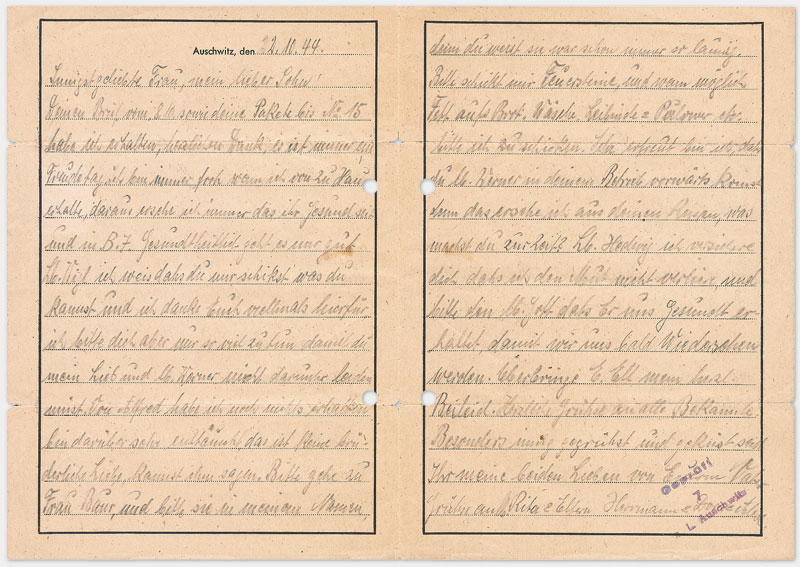 Auschwitz, den 22.10.44.
Innigstgeliebte Frau, mein lieber Sohn!
Deinen Brief vom 8.10 sowie deine Pakete bis No 15
habe ich erhalten, herzlichen Dank, es ist immer ein
Freudetag, ich bin immer froh, wenn ich von zu Haus
erhalte, daraus ersehe ich immer das ihr Gesund seit
und in B.F. Gesundheitlich geht es mir gut
Lb. ich weis dahs du mir schikst was du
kannst und ich danke Euch vielmals hierfür
ich bitte dich aber nur so viel zu tun, damit du
mein Lieb und lb. Werner nicht darunter leiden
müst. Von Alfred habe ich noch nichts erhalten
bin darüber sehr entäuscht, das ist keine brü-
derliche Liebe, kannst ihm sagen. Bitte gehe zu
Frau Baur, und bitte sie in meinem Namen,
denn du weist so war schon immer so launig.
Bitte schikt mir Feuersteine, und wenn möglich
Fett aufs Brot. Wäsche, Leibinde = Pulower etc.
bitte ich zu schicken. Sehr erfreut bin ich dahs
du lb. Werner in deinem Betrieb vorwärts komst
denn das ersehe ich aus deinen was
machst du zur Zeit? Lb. Hedwig ich versichere
dich dahs ich den Mut nicht verliere, und
bitte den lb. Gott dahs Er uns Gesundt er-
haltet, damit wir uns bald Wiedersehen
werden. Überbringe E. Ell mein herzl.
Beileid. Herzliche Grühse an alle Bekannte
Besonders innig gegrühst und geküst seid
Ihr meine beiden Lieben von Eurem
Grühse an Rita & Eltern Hermann
Geprüft
7
K. L. Auschwitz